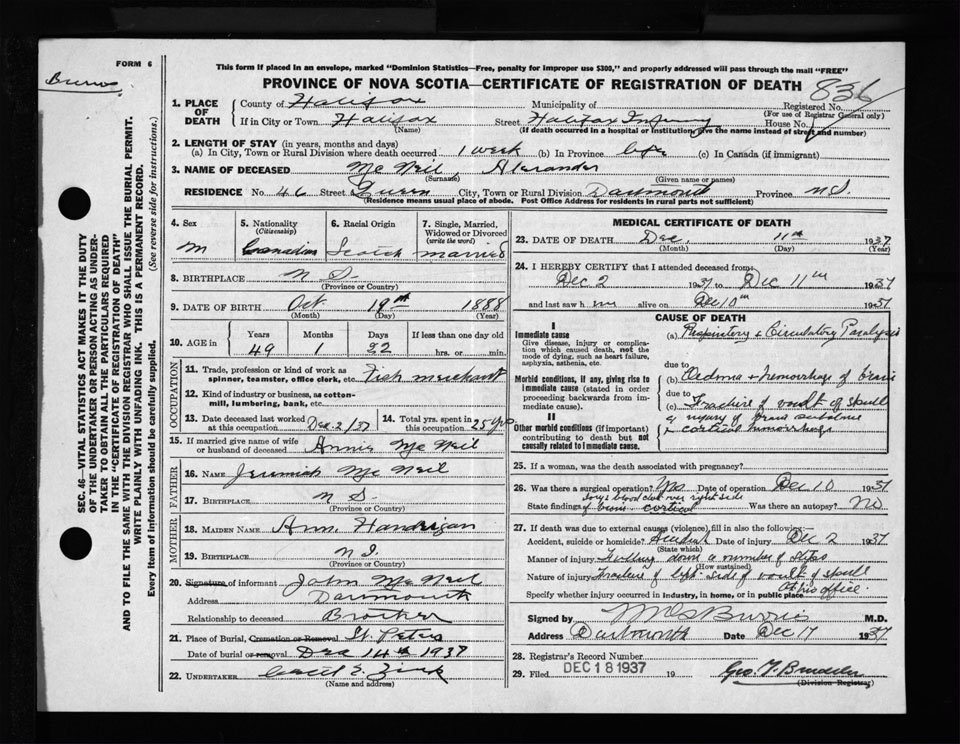 FORM 6
This form if placed in an envelope, marked "Dominion Statistics—Free, penalty for improper use $300," and properly addressed will pass through the mail "FREE"
Burns
PROVINCE OF NOVA SCOTIA—CERTIFICATE OF REGISTRATION OF DEATH
836
1. PLACE OF DEATH
County of Halifax Municipality of Registered No.
(For use of Registrar General only)
If in City or Town Halifax Street Halifax Infirmary House No.
(Name) (If death occurred in a hospital or institution, give the name instead of street and number)
2. LENGTH OF STAY (in years, months and days)
(a) In City, Town or Rural Division where death occurred 1 week (b) In Province life (c) In Canada (if immigrant)
3. NAME OF DECEASED Mc Neil, Alexander
(Surname) (Given name or names)
RESIDENCE No. 46 Street Queen City, Town or Rural Division Dartmouth Province N.S.
(Residence means usual place of abode. Post Office Address for residents in rural parts not sufficient)
4. Sex
M
5. Nationality
(Citizenship)
Canadian
6. Racial Origin
Scotch
7. Single, Married, Widowed or Divorced
(write the word)
married
8. BIRTHPLACE N S.
(Province or Country)
9. DATE OF BIRTH Oct. 19th 1888
(Month) (Day) (Year)
10. AGE in
Years Months Days If less than one day old
49 1 22 hrs. or min.
OCCUPATION
11. Trade, profession or kind of work as
spinner, teamster, office clerk, etc. Fish merchant
12. Kind of industry or business, as cotton-
mill, lumbering, bank, etc.
13. Date deceased last worked
at this occupation Dec 2/37
14. Total yrs. spent in
this occupation 25 yrs
15. If married give name of wife
or husband of deceased Annie Mc Neil
FATHER
16. NAME Jeremiah Mc Neil
17. BIRTHPLACE N S.
(Province or Country)
MOTHER
18. MAIDEN NAME Ann. Handrigan
19. BIRTHPLACE N.S.
(Province or Country)
20. Signature of informant John Mc Neil
Address Dartmouth
Relationship to deceased Brother
21. Place of Burial, Cremation or Removal St. Peters
Date of burial or removal Dec 14th 1937
22. UNDERTAKER Cecil E. Zink
(Name and address)
MEDICAL CERTIFICATE OF DEATH
23. DATE OF DEATH Dec. 11th 1937
(Month) (Day) (Year)
24. I HEREBY CERTIFY that I attended deceased from:
Dec 2 1937 to Dec 11th 1937
and last saw him alive on Dec 10th 1937
CAUSE OF DEATH
I
Immediate cause
Give disease, injury or compli-
cation which caused death, not the
mode of dying, such as heart failure,
asphyxia, asthenia, etc.
(a) Respiratory & Circulatory Paralysis
due to
Morbid conditions, if any, giving rise to
immediate cause (stated in order
proceeding backwards from im-
mediate cause).
(b) Oedema & hemorrhage of brain
due to
(c) Fracture of vault of skull
& injury of brain substance
& cortical hemorrhage
II
Other morbid conditions (if important)
contributing to death but not
causally related to immediate cause.
25. If a woman, was the death associated with pregnancy?
26. Was there a surgical operation? Yes Date of operation Dec 10 1937
large blood clot over right side
State findings of brain - cortical Was there an autopsy? No
27. If death was due to external causes (violence), fill in also the following:—
Accident, suicide or homicide? Accident Date of injury Dec 2 1937
(State which)
Manner of injury Falling down a number of steps
(How sustained)
Nature of injury Fracture of left side of vault of skull
Specify whether injury occurred in industry, in home, or in public place At his office.
Signed by Burris M.D.
Address Dartmouth Date Dec 17 1937
28. Registrar's Record Number
29. Filed DEC 18 1937 19
(Division Registrar)
SEC. 46—VITAL STATISTICS ACT MAKES IT THE DUTY
OF THE UNDERTAKER OR PERSON ACTING AS UNDER-
TAKER TO OBTAIN ALL THE PARTICULARS REQUIRED
IN THE "CERTIFICATE OF REGISTRATION OF DEATH"
AND TO FILE THE SAME WITH THE DIVISION REGISTRAR WHO SHALL ISSUE THE BURIAL PERMIT.
WRITE PLAINLY WITH UNFADING INK. THIS IS A PERMANENT RECORD.
Every item of information should be carefully supplied. (See reverse side for instructions.)